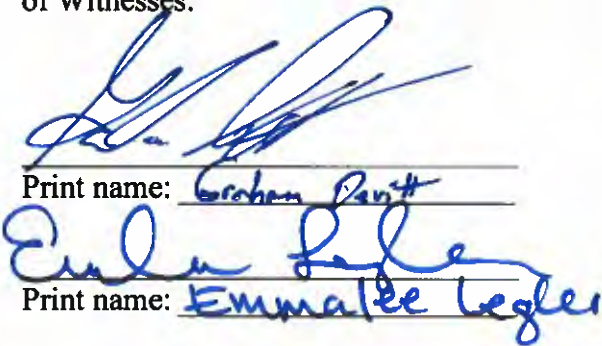 of Witnesses:
Print name: Graham Davitt
Print name: Emmalee Legler